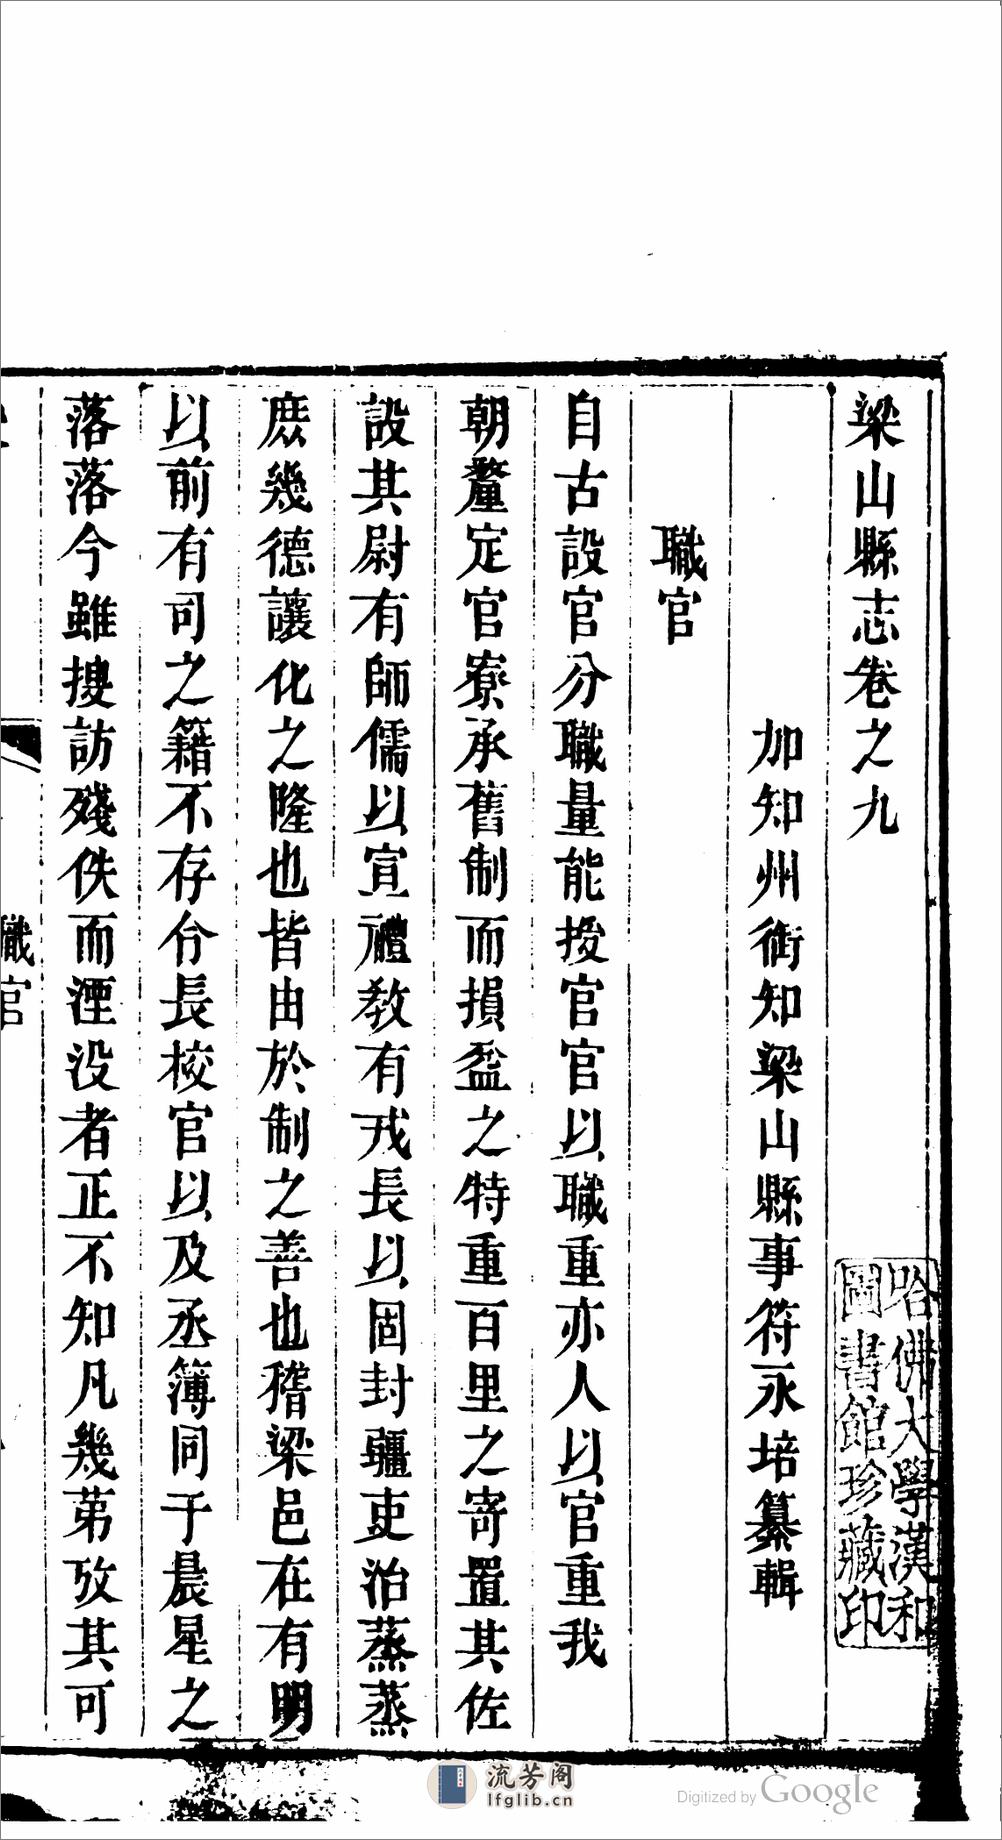 梁山縣志卷之九
加知州銜知梁山縣事符永培纂輯
職官
自古設官分職量能授官官以職重亦人以官重我
朝釐定官寮承舊制而損益之特重百里之寄置其佐
設其尉有師儒以宣禮教有戎長以固封疆吏治蒸蒸
庶幾德讓化之隆也皆由於制之善也稽梁邑在有明
以前有司之籍不存令長校官以及丞簿同于晨星之
落落今雖搜訪殘佚而湮沒者正不知凡幾第攷其可
職官
哈佛大學漢和
圖書館珍藏印
流芳阁
lfglib.cn
Digitized by Google